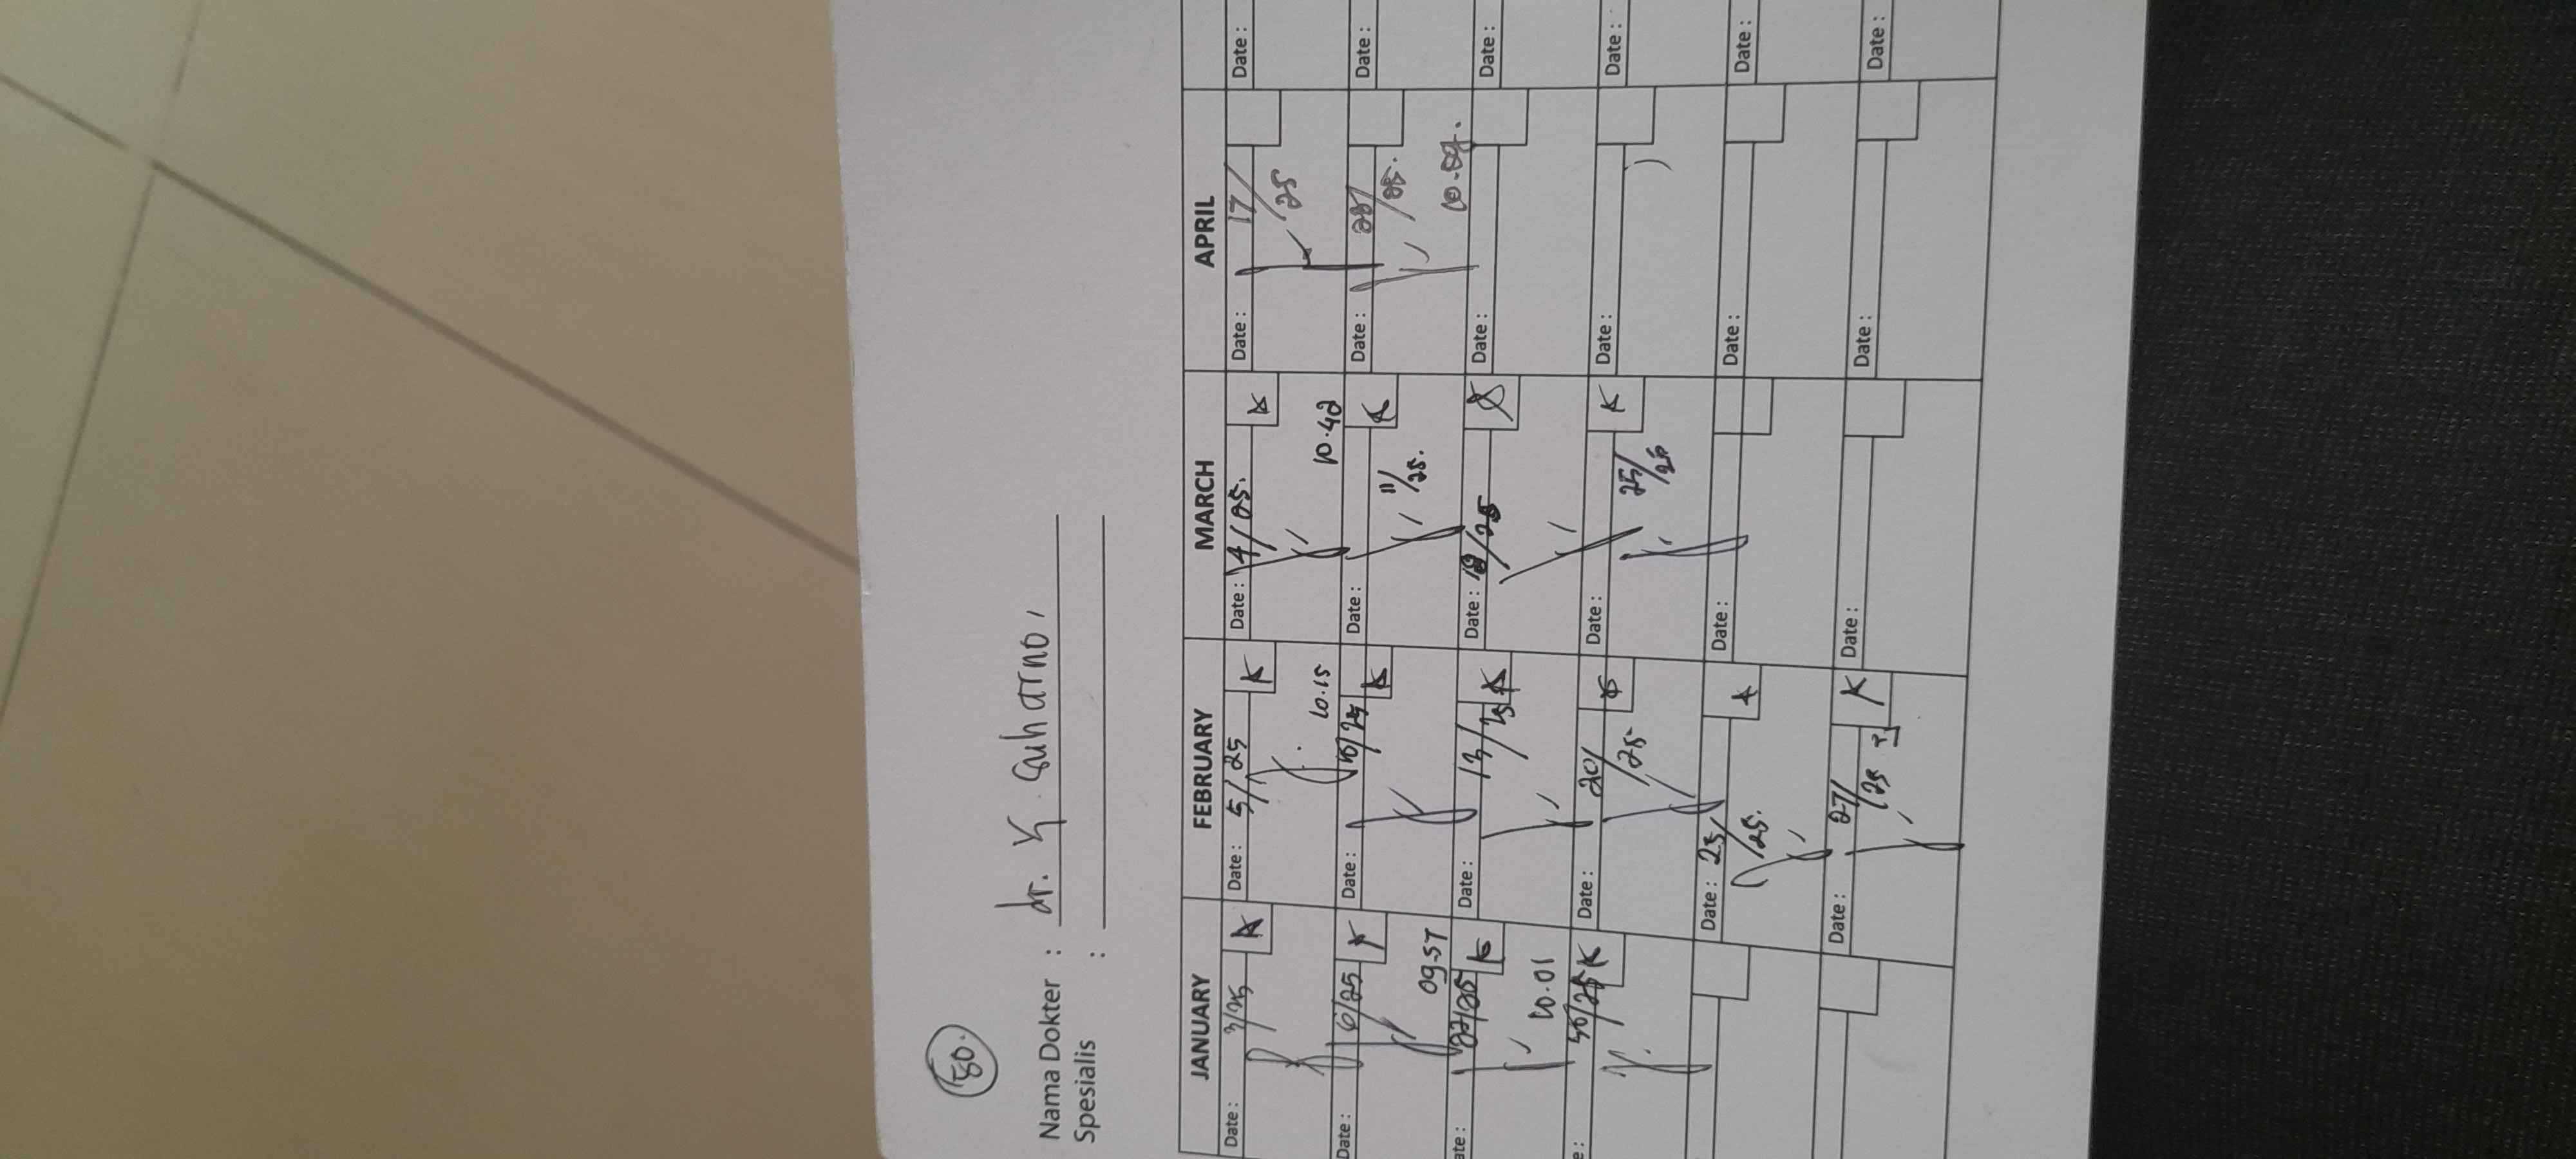 80.
Nama Dokter : dr. K. Suharno,
Spesialis :
JANUARY FEBRUARY MARCH APRIL
Date : 3/25 K Date : 5/25 K 10.15 Date : 4/25. K 10.42 Date : 17/25 Date :
Date : 6/25 K 09.57 Date : 10/25 K Date : 11/25. K Date : 28/25. Date :
ate : 22/25 K 10.01 Date : 13/25 K Date : 18/25 Date : Date :
e : 30/25 K Date : 20/25 K Date : 25/25 K Date : Date :
Date : 25/25. K Date : Date : Date :
Date : 27/25 K Date : Date : Date :